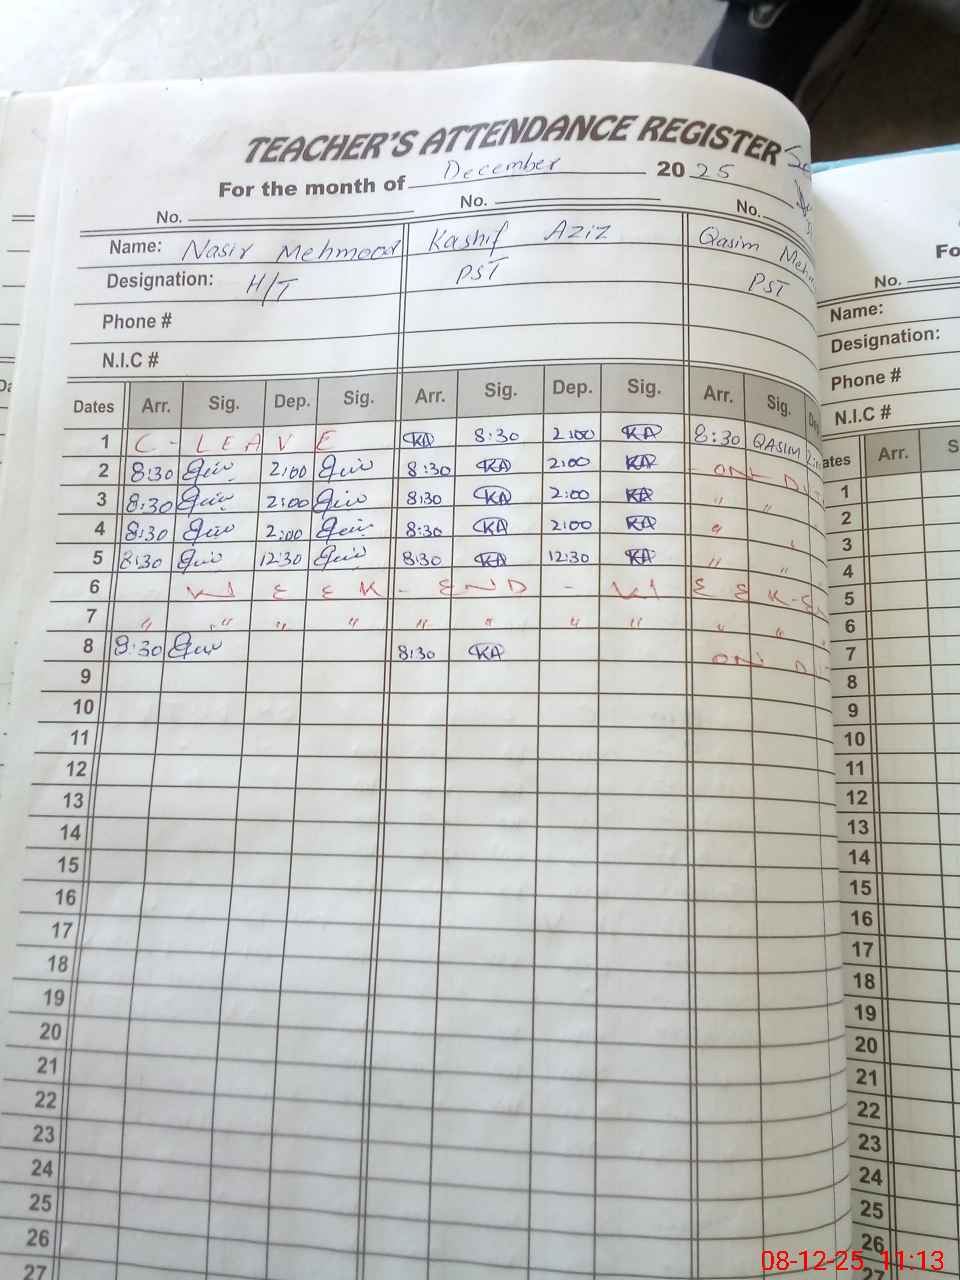 TEACHER'S ATTENDANCE REGISTER
For the month of December 2025
No. No. No.
Name: Nasir Mehmood Kashif Aziz Qasim
Designation: H/T PST PST
Phone #
N.I.C #
Dates Arr. Sig. Dep. Sig. Arr. Sig. Dep. Sig. Arr. Sig.
1 C-LEAVE KA 8:30 2:00 KA 8:30 QASIM
2 8:30 2:00 8:30 KA 2:00 KA
3 8:30 2:00 8:30 KA 2:00 KA " "
4 8:30 2:00 8:30 KA 2:00 KA "
5 8:30 12:30 8:30 KA 12:30 KA " "
6 WEEK-END - WEEK-
7 " " " " " " " " " "
8 8:30 8:30 KA
9
10
11
12
13
14
15
16
17
18
19
20
21
22
23
24
25
26
27
No.
Name:
Designation:
Phone #
N.I.C #
Arr.
1
2
3
4
5
6
7
8
9
10
11
12
13
14
15
16
17
18
19
20
21
22
23
24
25
26
27
08-12-25 11:13